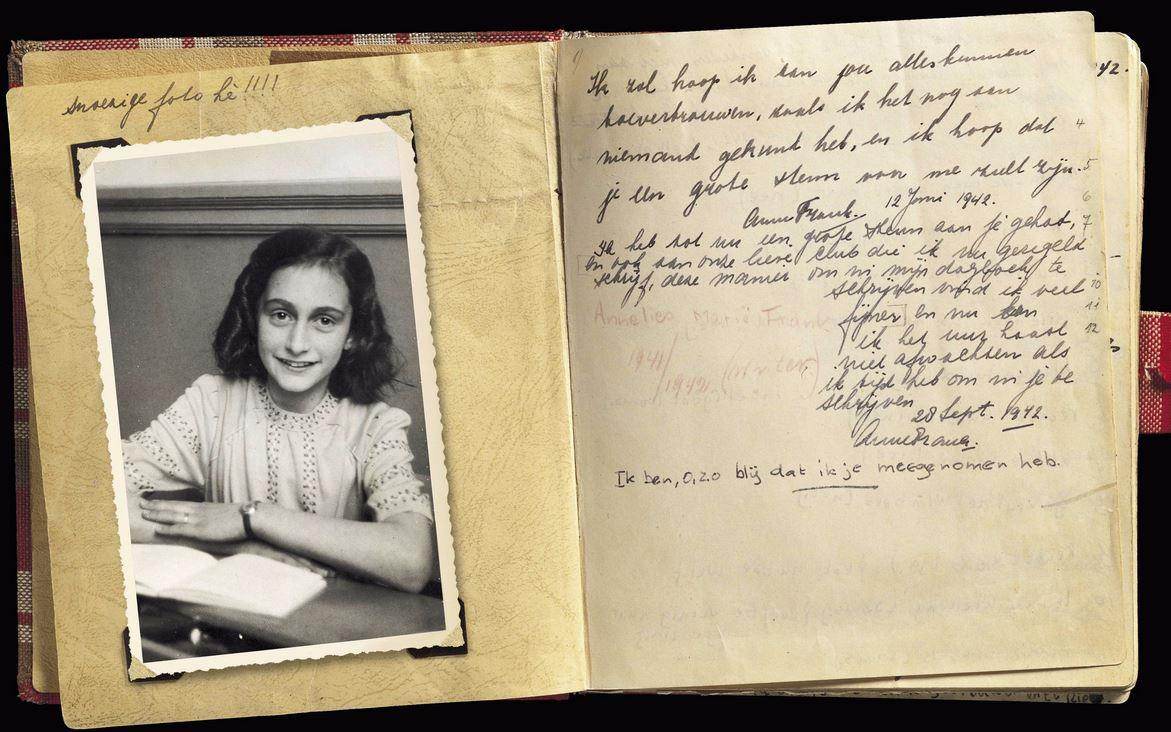 Snoezige foto hè!!!!
Ik zal hoop ik aan jou alles kunnen
toevertrouwen, zoals ik het nog aan
niemand gekund heb, en ik hoop dat
je een grote steun van me zult zijn.
Anne Frank. 12 Juni 1942.
Ik heb tot nu een grote steun aan je gehad,
en ook aan onze lieve club die ik nu geregeld
schrijf, deze manier om in mijn dagboek te
schrijven vind ik veel
fijner en nu kan
ik het uur haast
niet afwachten als
ik tijd heb om in je te
schrijven
28 Sept. 1942.
Anne Frank.
Ik ben, o, zo blij dat ik je meegenomen heb.
Annelies Marie Frank
1941/
1942
42.
4
5
6
7
10
11
12